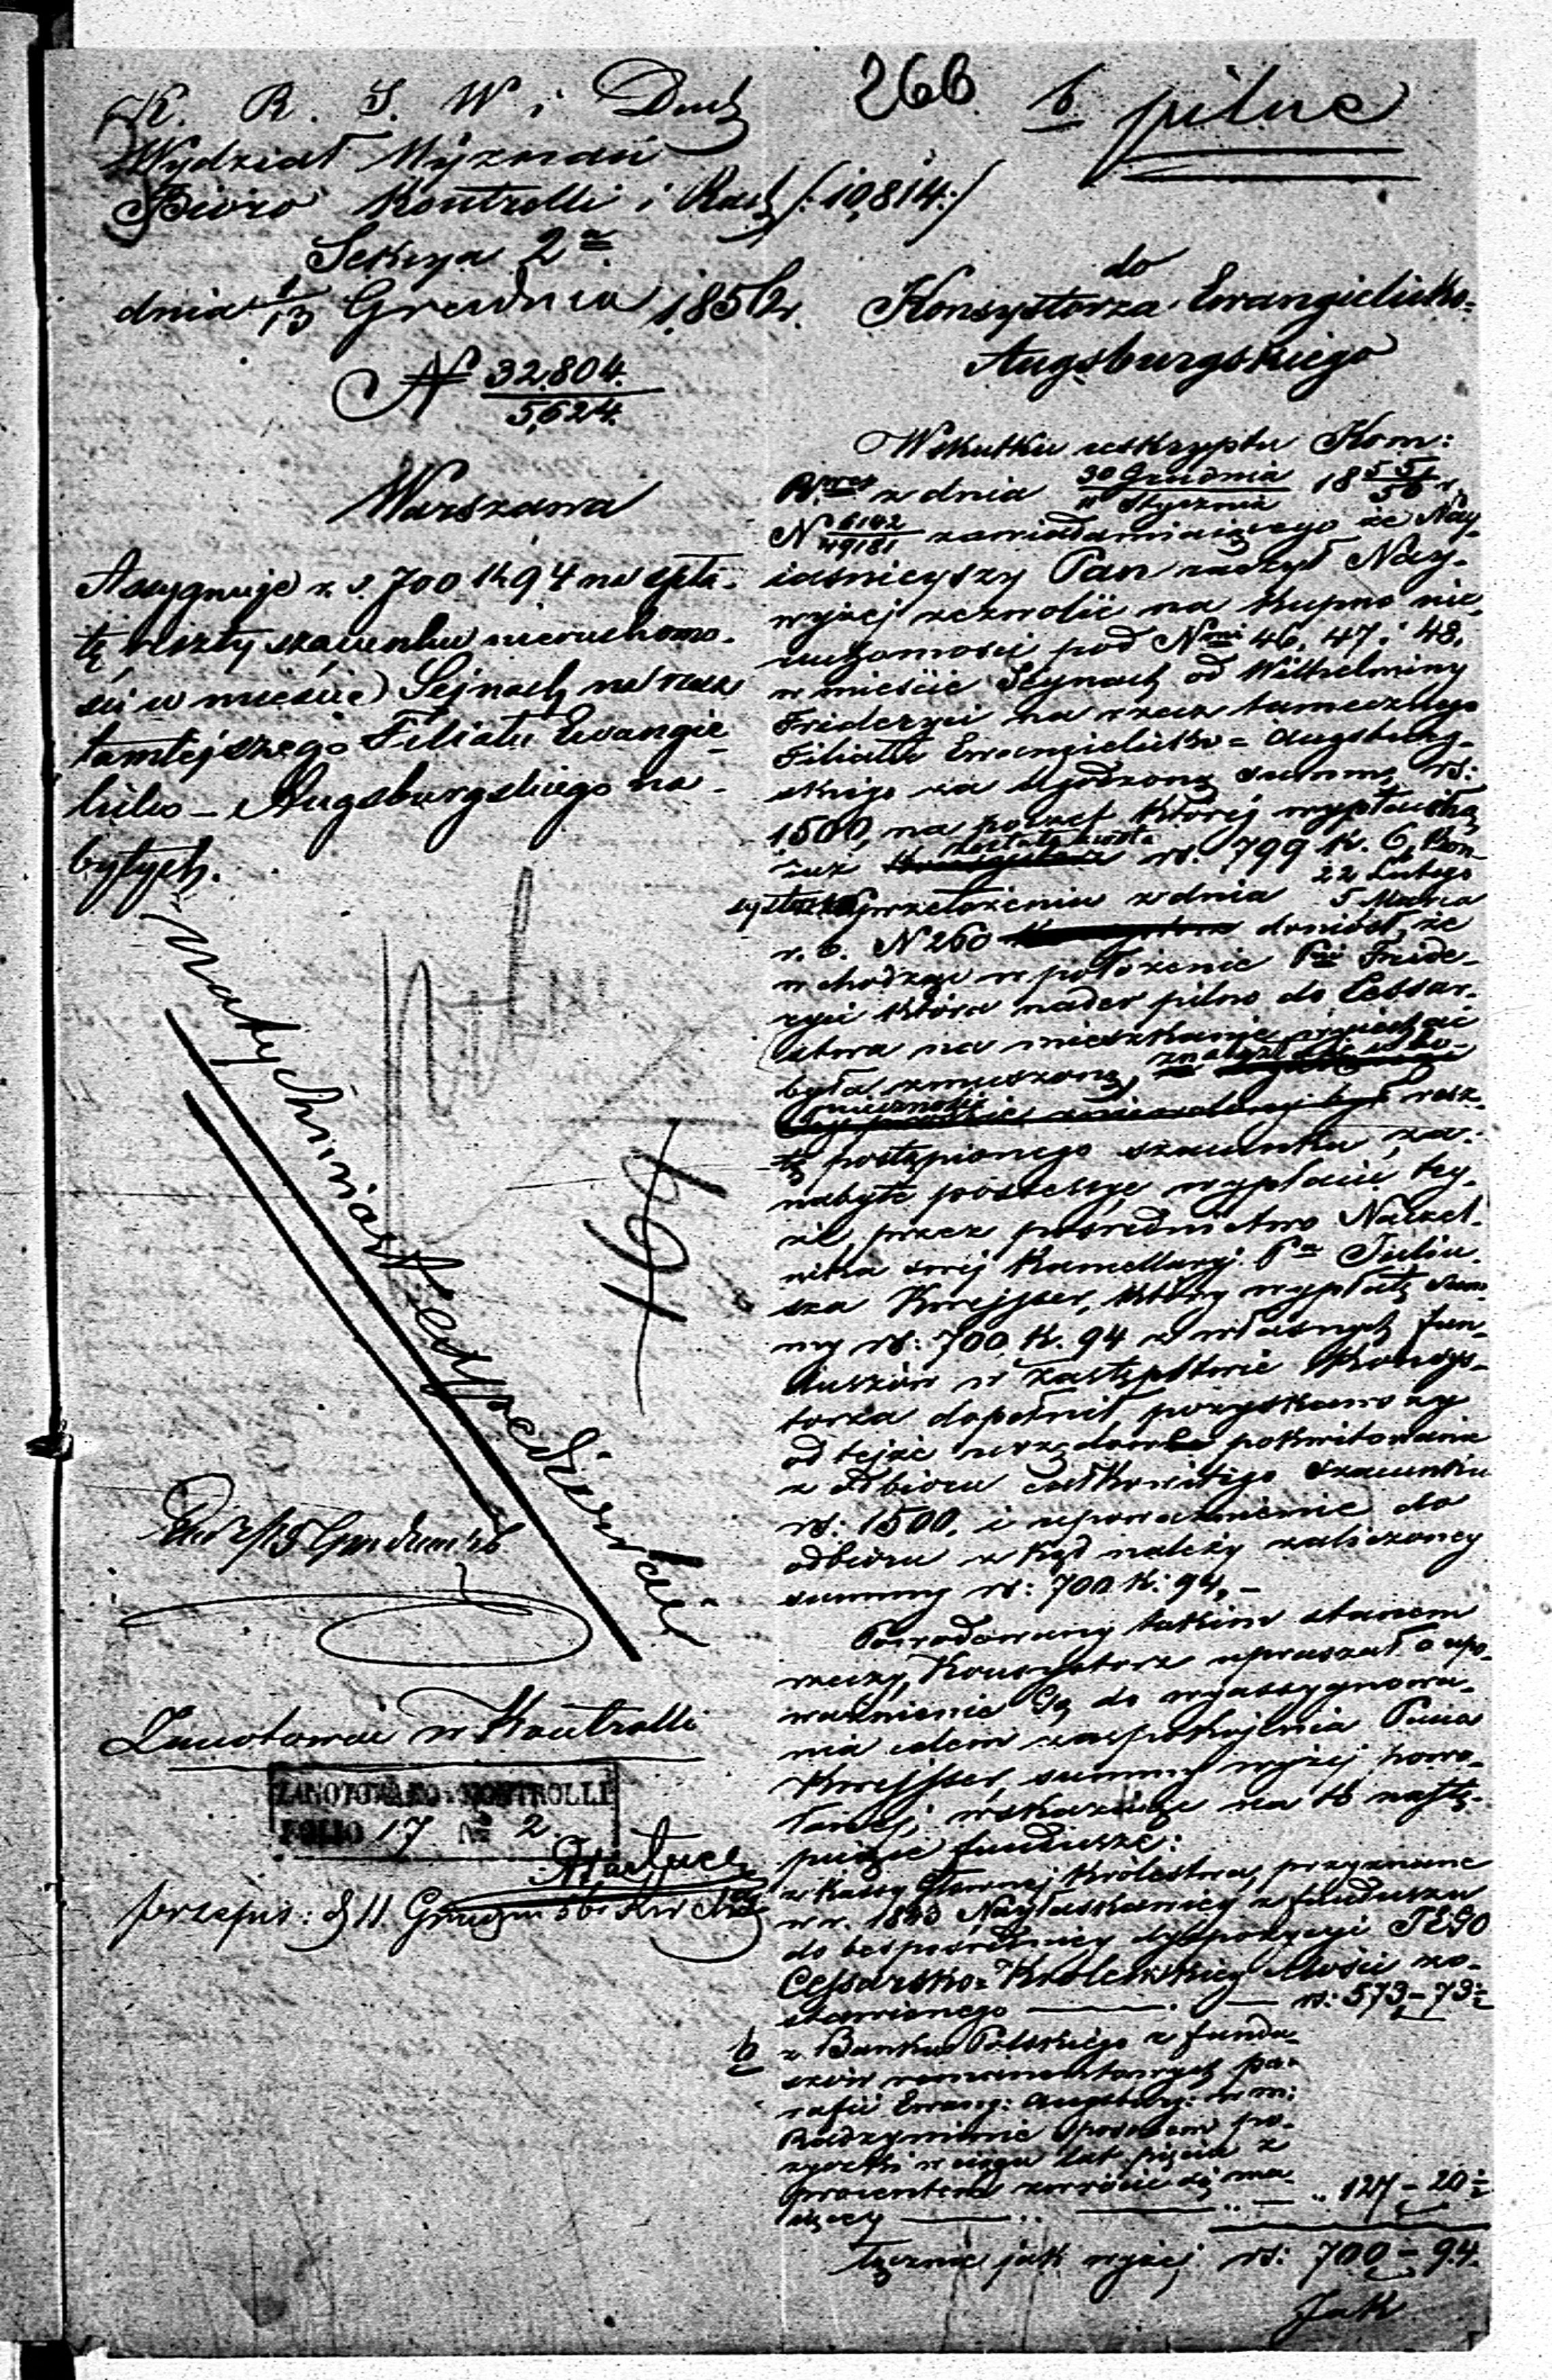 266
b pilne
K. R. S. W i Duch
Wydział Wyznań
Bióro Kontrolli i Rach /:10,814:/
Sekcya 2a
dnia 1/13 Grudnia 1856 r.
N 32,804. / 5,624.
Warszawa
Assygnuje r. s. 700 k 94 na spła-
tę reszty szacunku nieruchomo-
ści w mieście Sejnach na rzecz
tamtejszego Filiału Ewangie-
licko-Augsburgskiego na-
bytych.
Natychmiast expedjować
pilne
169
Zanotować w Kontrolli
ZANOTOWANO w KONTROLLI
FOLIO 17 No 2
przepis: d 11. Grudzn 56
do
Konsystorza Ewangielicko-
Augsburgskiego
Wskutku reskryptu Kom:
z dnia 30 Grudnia / 11 Stycznia 1855/56 r.
N 6142/49181 zawiadamiaiącego że Nay-
iaśnieyszy Pan raczył Nay-
wyżej zezwolić na kupno nie-
ruchomości pod Nmi 46, 47, i 48,
w mieście Seynach od Wilhelminy
Frideryci na rzecz tamecznego
Filiału Ewangielicko-Augsburg-
skiego za ugodzoną summę rs:
1500, na poczet której wypłaconą
już została kwota rs. 799 k. 6, Kon-
systorz przełożeniem z dnia 22 Lutego / 5 Marca
r. b. N 260 doniósł, że
wchodząc w położenie Pni Fride-
ryci która nader pilno do Cessar-
stwa na mieszkanie wyjechać
była zmuszoną, znalazł się w ko-
nieczności resz-
tę postąpionego szacunku za
nabyte possessye wypłacić tey-
że przez pośrednictwo Naczel-
nika swej Kancellaryi Pa Juliu-
sza Krejsser, który wypłatę sum-
my rs: 700 k. 94 z własnych fun-
duszów w zastępstwie Konsys-
torza dopełnił, pozyskawszy
od tejże urzędowe pokwitowanie
z odbioru całkowitego szacunku
rs: 1500. i upoważnienie do
odbioru z kąd należy zaliczoney
summy rs: 700 k: 94.-
Powodowany takim stanem
rzeczy, Konsystorz upraszał o upo-
ważnienie Go do wyassygnowa-
nia celem zaspokojenia Pana
Krejsser, summy wyżej powo-
łanej, wskazując na to nastę-
pujące fundusze:
z Kassy Głównej Królestwa, przyznane
w r. 1843 Nayłaskawiey z funduszu
do bespośredniey dyspozycyi JEGO
Cessarsko-Królewskiey Mości zo-
stawionego rs: 573-73 1/2
b z Banku Polskiego z fundu-
szów remanentowych pa-
rafii Ewang: Augsburg: w m:
Radzyminie sposobem po-
życzki w ciągu lat pięciu z
procentem zwrócić się ma-
iącey 127-20 1/2
łącznie jak wyżej rs: 700-94.
Jak